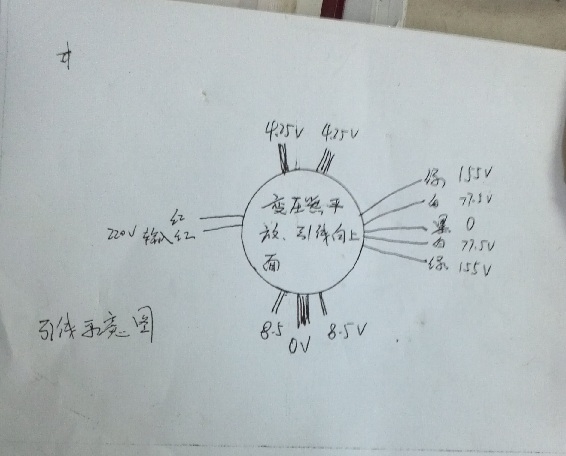 4.25V 4.25V
绿 155V
白 77.5V
黑 0
白 77.5V
绿 155V
变压器平
放、引线向上
面
红
220V 输入 红
8.5 0V 8.5V
引线示意图